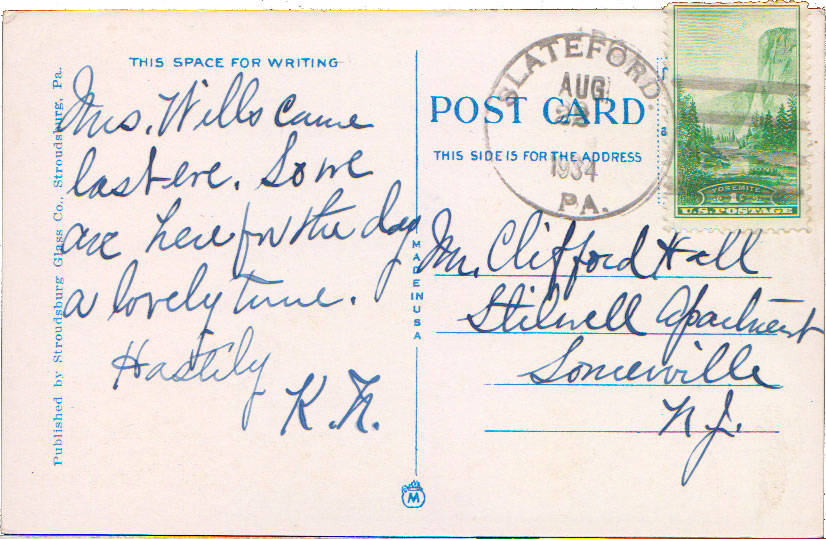 THIS SPACE FOR WRITING
Mrs. Wills came
last eve. So we
are here for the day
a lovely time.
Hastily
K. K.
Published by Stroudsburg Glass Co., Stroudsburg, Pa.
MADE IN USA
M
SLATEFORD.
AUG
1934
PA.
POST CARD
THIS SIDE IS FOR THE ADDRESS
YOSEMITE
1¢
U.S. POSTAGE
Mr. Clifford Hall
Stilwell Apartment
Somerville
N.J.